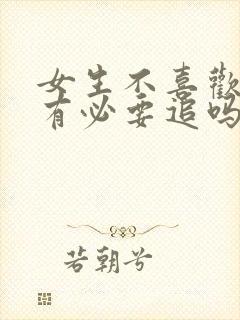 女生不喜歡
有必要追吗
若朝兮